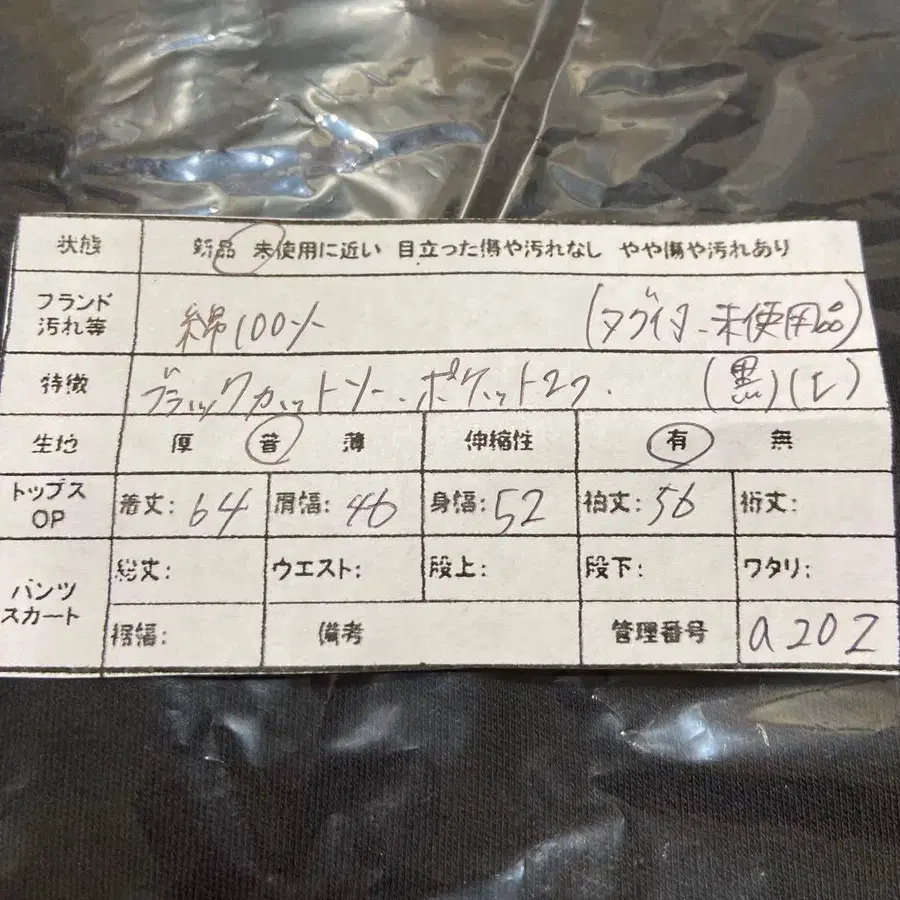 状態 新品 未使用に近い 目立った傷や汚れなし やや傷や汚れあり
フランド 汚れ等 綿100% (タグ付 未使用品)
特徴 ブラックカットソー ポケット2つ (黒)(L)
生地 厚 普 薄 伸縮性 有 無
トップス OP 着丈: 64 肩幅: 46 身幅: 52 袖丈: 56 裄丈:
パンツ スカート 総丈: ウエスト: 股上: 股下: ワタリ:
裾幅: 備考 管理番号 a202